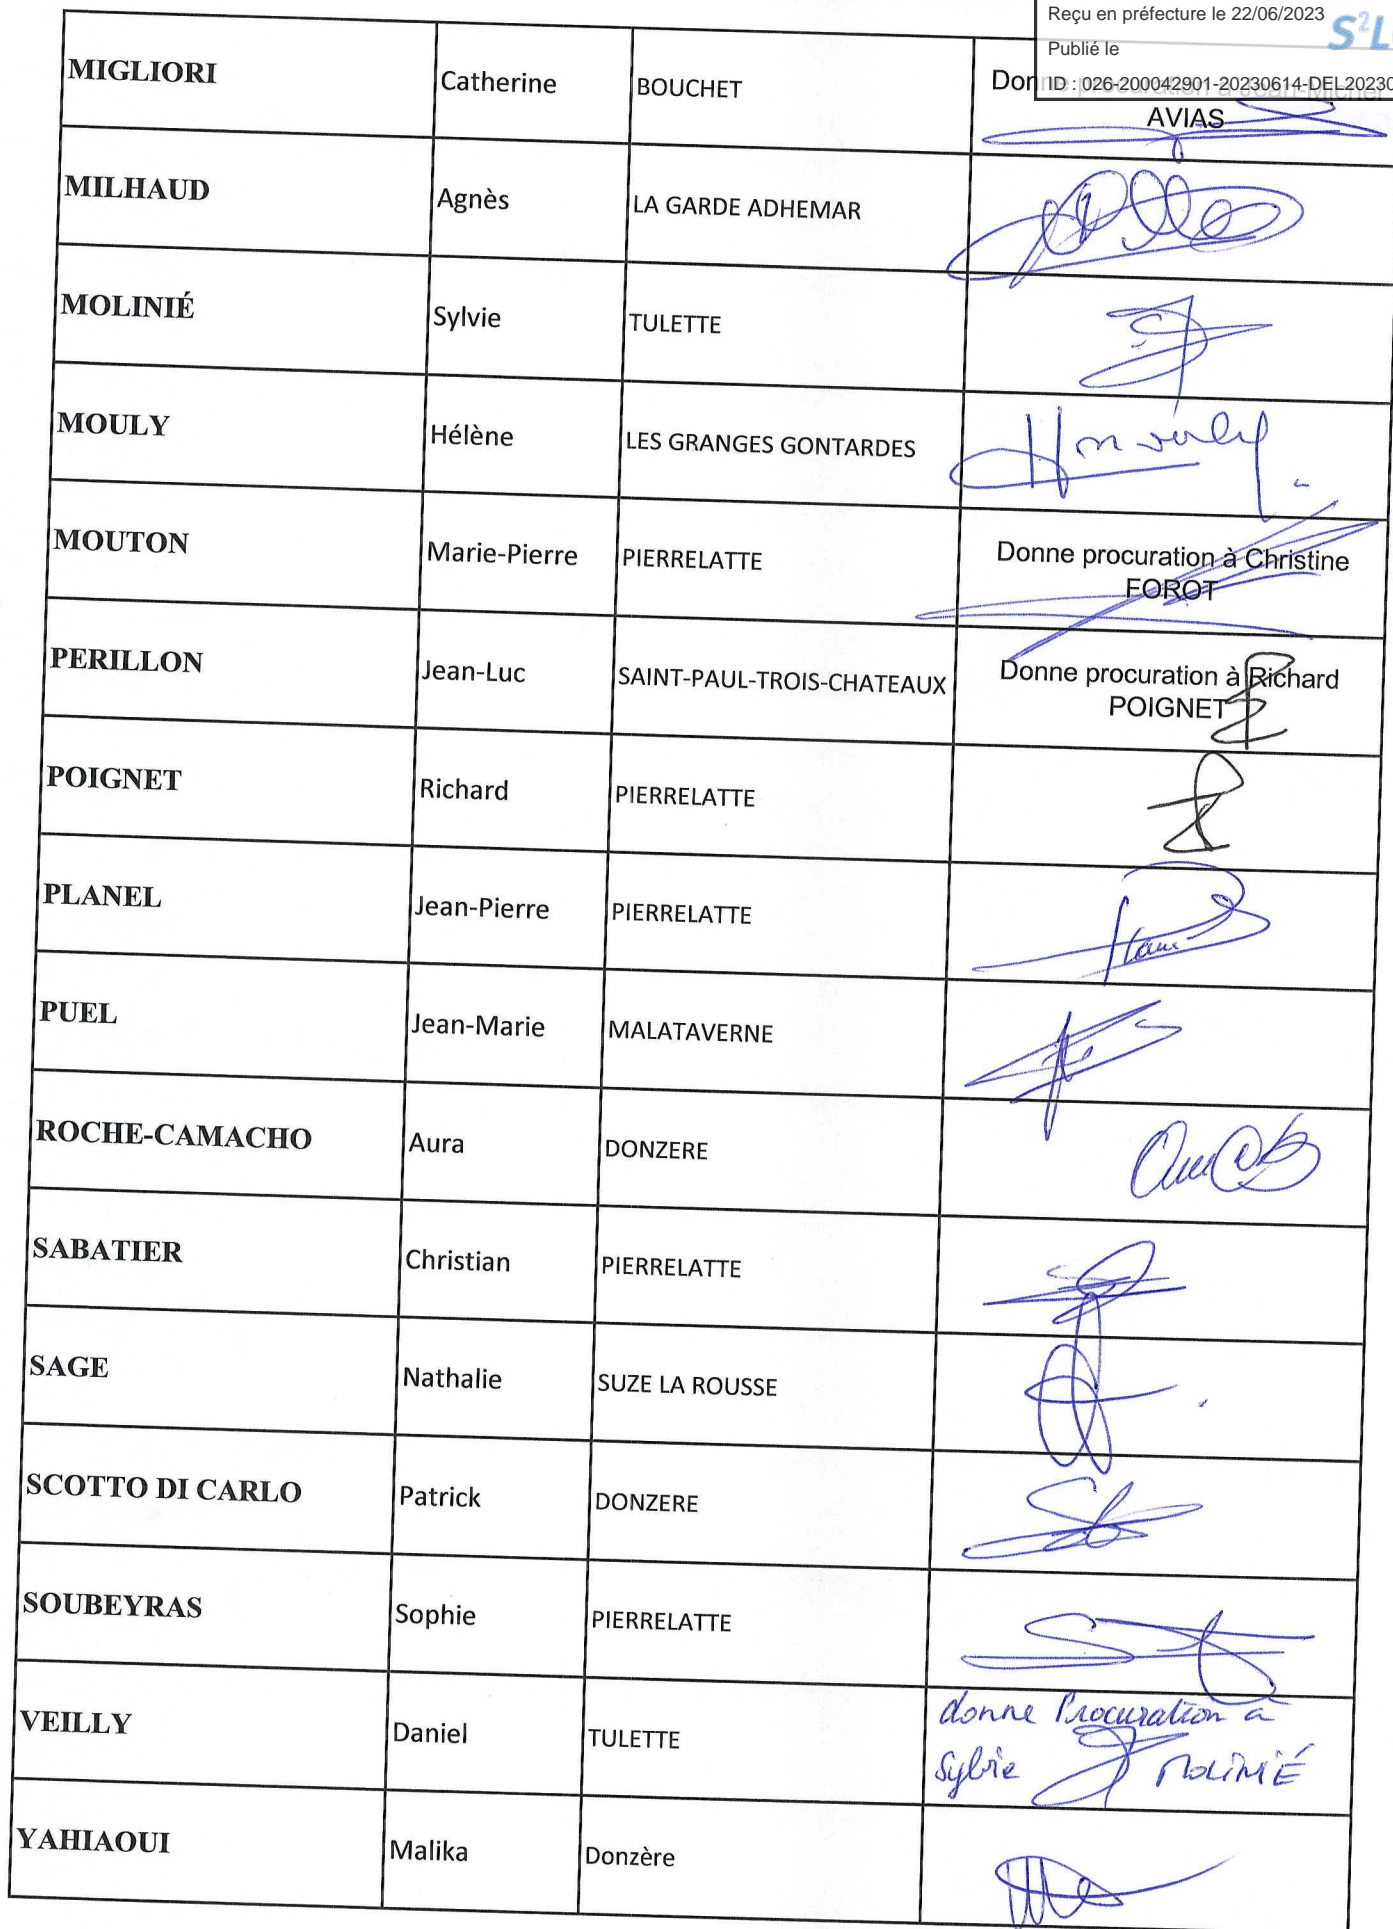 Reçu en préfecture le 22/06/2023
Publié le
S²L
ID : 026-200042901-20230614-DEL20230
MIGLIORI Catherine BOUCHET Donne procuration à Jean-Michel
AVIAS
MILHAUD Agnès LA GARDE ADHEMAR
MOLINIÉ Sylvie TULETTE
MOULY Hélène LES GRANGES GONTARDES
H mouly
MOUTON Marie-Pierre PIERRELATTE Donne procuration à Christine
FOROT
PERILLON Jean-Luc SAINT-PAUL-TROIS-CHATEAUX Donne procuration à Richard
POIGNET
POIGNET Richard PIERRELATTE
PLANEL Jean-Pierre PIERRELATTE
PUEL Jean-Marie MALATAVERNE
ROCHE-CAMACHO Aura DONZERE
SABATIER Christian PIERRELATTE
SAGE Nathalie SUZE LA ROUSSE
SCOTTO DI CARLO Patrick DONZERE
SOUBEYRAS Sophie PIERRELATTE
VEILLY Daniel TULETTE donne Procuration à
Sylvie MOLINIÉ
YAHIAOUI Malika Donzère